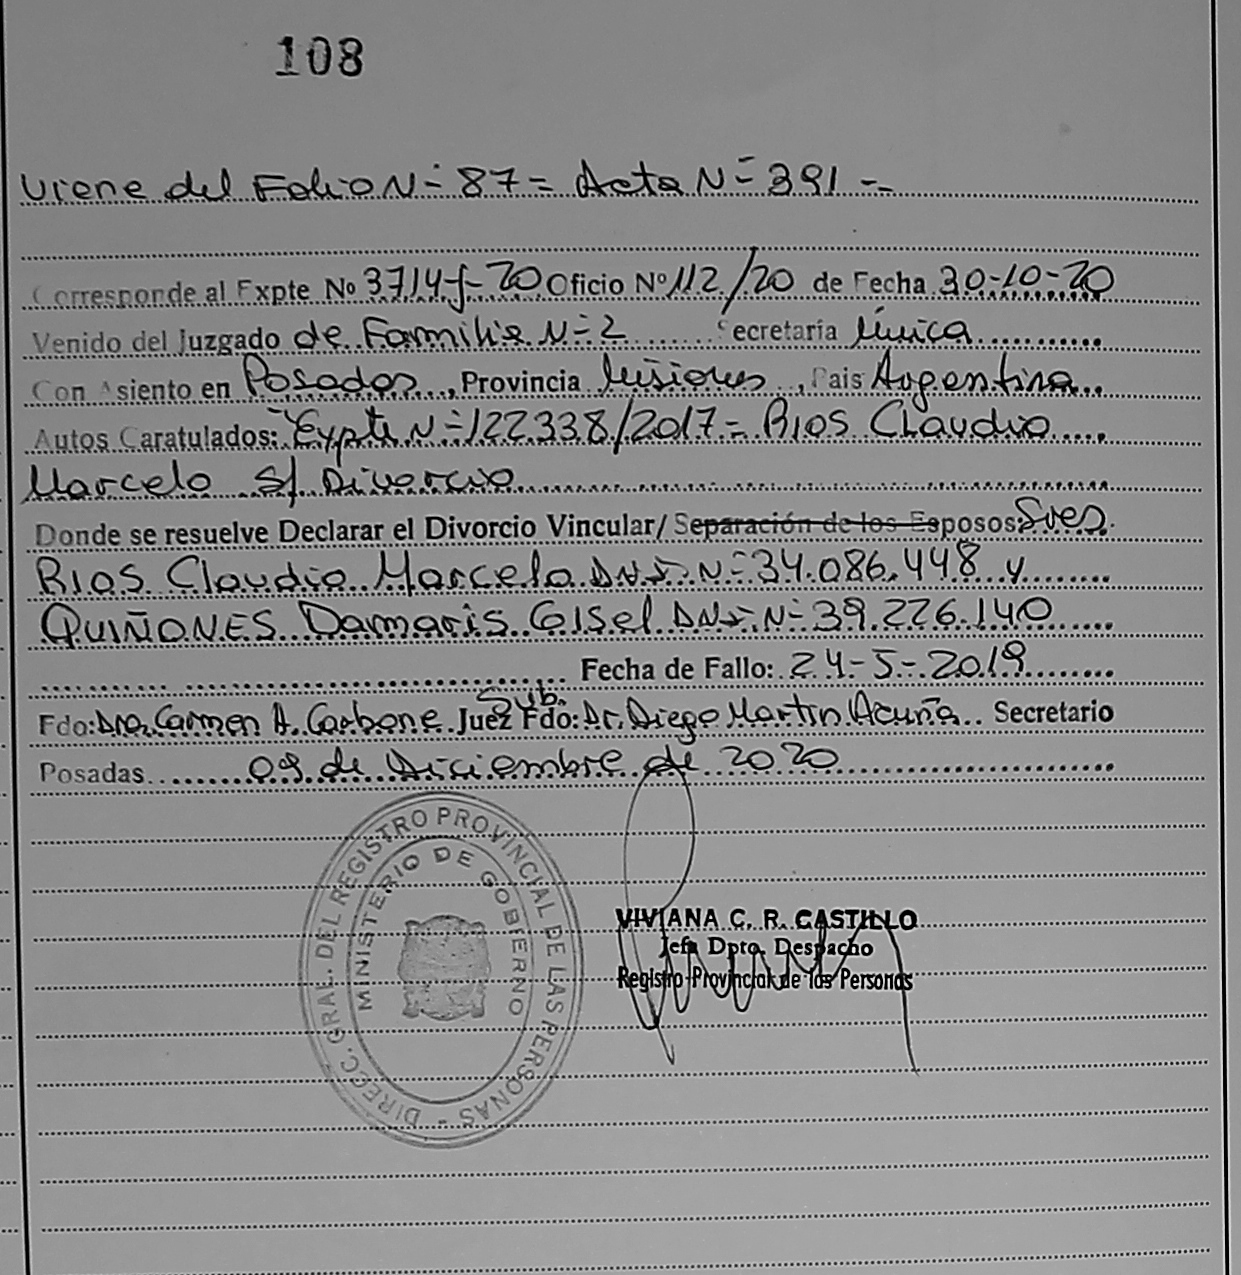 108
Viene del Folio N= 87= Acta N= 391 --
Corresponde al Expte Nº 3714-f-20 Oficio Nº 112/20 de Fecha 30-10-20
Venido del Juzgado de Familia N=2 Secretaría Única
Con Asiento en Posadas, Provincia Misiones, Pais Argentina
Autos Caratulados: Expte N=122.338/2017= Rios Claudio
Marcelo S/ Divorcio
Donde se resuelve Declarar el Divorcio Vincular/ Separación de los Esposos: Sres.
RIOS Claudio Marcelo D.N.I. N=34.086.448 y
QUIÑONES Damaris Gisel D.N.I. N=39.226.140
Fecha de Fallo: 24-5-2019
Sub.
Fdo: Dra. Carmen A. Carbone Juez Fdo: Dr. Diego Martin Acuña Secretario
Posadas 09 de Diciembre de 2020
DIRECC. GRAL. DEL REGISTRO PROVINCIAL DE LAS PERSONAS -
MINISTERIO DE GOBIERNO
VIVIANA C. R. CASTILLO
Jefa Dpto. Despacho
Registro Provincial de las Personas